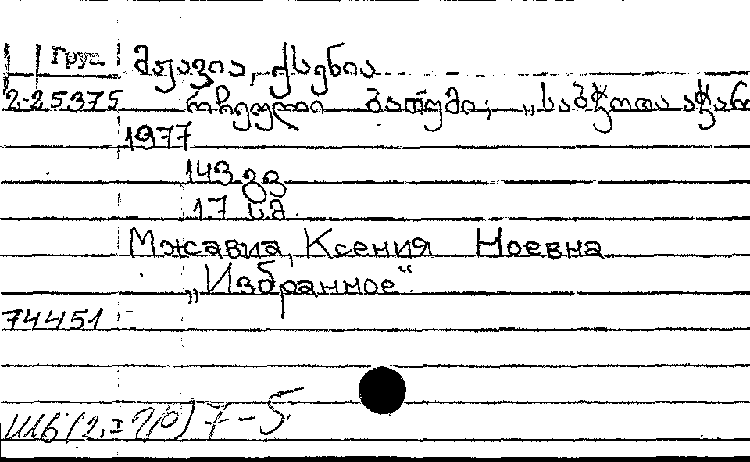 Груз მჟავია, ქსენია
2-25375 რჩეული ბათუმი; „საბჭოთა აჭარ
1977
143 გვ
17 სმ.
Мжавиа, Ксения Ноевна
„Избранное“
74451
Ш6(2.I 7-5